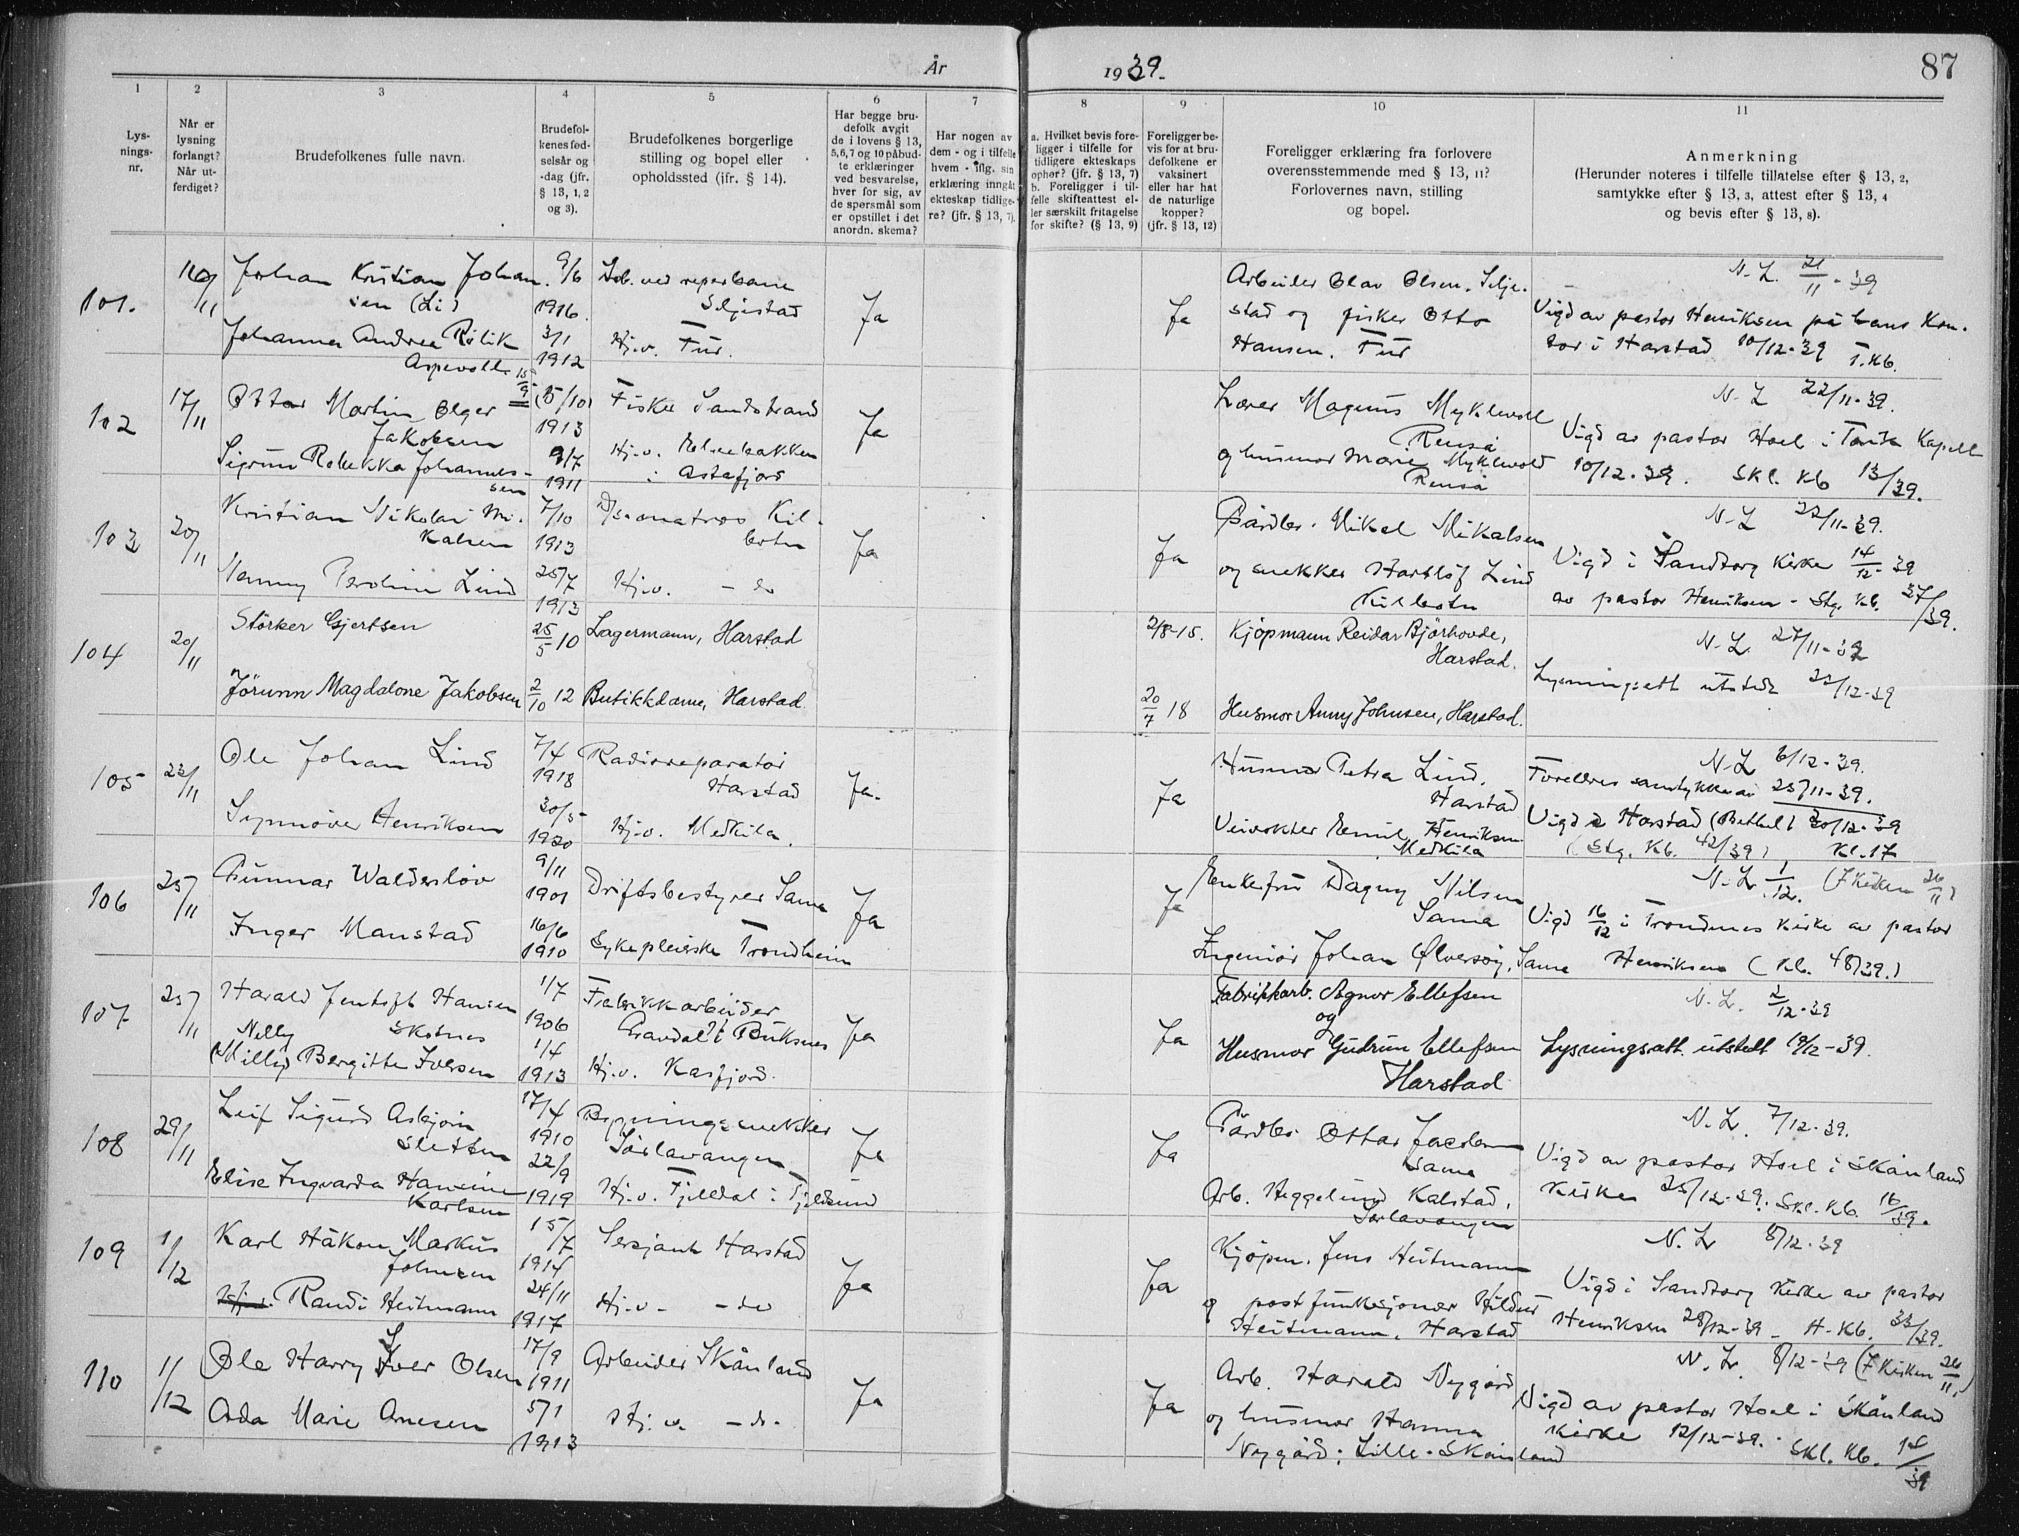 År 1939.
87
1 2 3 4 5 6 7 8 9 10 11
Lys-
nings-
nr.
Når er
lysning
forlangt?
Når ut-
ferdiget?
Brudefolkenes fulle navn.
Brudefol-
kenes fød-
selsår og
-dag (jfr.
§ 13, 1, 2
og 3).
Brudefolkenes borgerlige
stilling og bopel eller
opholdssted (jfr. § 14).
Har begge bru-
defolk avgit
de i lovens § 13,
5, 6, 7 og 10 påbud-
te erklæringer
ved besvarelse,
hver for sig, av
de spørsmål som
er opstillet i det
anordn. skema?
Har nogen av
dem - og i tilfelle
hvem - iflg. sin
erklæring inngåt
ekteskap tidlige-
re? (jfr. § 13, 7).
a. Hvilket bevis fore-
ligger i tilfelle for
tidligere ekteskaps
ophør? (jfr. § 13, 7)
b. Foreligger i til-
felle skifteattest el-
ler særskilt fritagelse
for skifte? (§ 13, 9)
Foreligger be-
vis for at bru-
defolkene er
vaksinert
eller har hat
de naturlige
kopper?
(jfr. § 13, 12)
Foreligger erklæring fra forlovere
overensstemmende med § 13, 11?
Forlovernes navn, stilling
og bopel.
Anmerkning
(Herunder noteres i tilfelle tillatelse efter § 13, 2,
samtykke efter § 13, 3, attest efter § 13, 4
og bevis efter § 13, 8).
101. 16/11 Johan Kristian Johan- 9/6
sen (Li) 1916.
Arb. ved reperbane
Seljestad
Ja
Johanna Andrea Rølik 3/1
Aspevoll 1912
Hj.v. Fur.
Ja
Arbeider Olav Olsen, Selje-
stad og fisker Otto
Hansen, Fur
N.L. 21/11-39
Vigd av pastor Henriksen på hans kon-
tor i Harstad 10/12-39 T.Kb.
102 17/11 Ottar Martin Olger 15/9 (15/10)
Jakobsen 1913
Fisker Sandstrand
Ja
Sigrun Rebekka Johannes- 9/7
sen 1911
Hj.v. Elsebakken
i Astafjord
Lærer Magnus Myklevoll
Renså
og husmor Marie Myklevold
Renså
N.L 22/11-39.
Vigd av pastor Hoel i Kapell
10/12-39. Skl. Kb 13/39.
103 20/11 Kristian Nikolai Mi- 7/10
kalsen 1913
Kil-
botn
Ja
Nanny Paroline Lind 25/7
1913
Hj.v. - do
Ja
Gårdbr. Mikal Mikalsen
og snekker Hartløf Lind
Kilbotn
N.L 22/11-39.
Vigd i Sandtorg kirke 14/12-39
av pastor Henriksen - Stg. Kb. 37/39.
104 20/11 Störker Gjertsen 25/5 10 Lagermann, Harstad
Jörunn Magdalone Jakobsen 2/10 12 Butikkdame, Harstad
2/8-15. Kjöpmann Reidar Bjørhovde,
Harstad.
20/7 18 Husmor Anny Johnsen, Harstad.
N.L. 27/11-39
Lysningsatt utstedt 22/12-39
105 22/11 Ole Johan Lind 7/4
1918
Radioreparatør
Harstad
Ja.
Synnøve Henriksen 30/5
1920
Hj.v. Medkila.
Ja
Husmor Petra Lind,
Harstad
Veivokter Emil Henriksen
Medkila
N.L 6/12-39.
Foreldres samtykke av 25/11-39.
Vigd i Harstad (Bethel) 30/12-39
(Stg. Kb. 42/39) Kl. 17
106 25/11 Gunnar Walderslöv 9/11
1901
Driftsbestyrer Sama
Ja
Inger Manstad 16/6
1910
Sykepleierske Trondheim
Ja
Enkefru Dagny Nilsen
Sama
Ingeniør Johan Ølversøy, Sama
N.L. 1/12. (I kirken 26/11)
Vigd 16/12 i Trondenes kirke av pastor
Henriksen (Kb. 48/39.)
107 25/11 Harald Jentoft Hansen 1/7
Skotnes 1906
Fabrikkarbeider
Gravdal i Buksnes
Ja
Nelly
(Milly) Bergitte Iversen 1/4
1913
Hj.v. Kasfjord.
Ja
Fabrikkarb. Agnor Ellefsen
og
Husmor Gudrun Ellefsen
Harstad
N.L. 2/12-39
Lysningsatt. utstedt 19/12-39.
108 29/11 Leif Sigurd Asbjørn 17/4
Sletten 1910
Bygningssnekker
Sørlavangen
Ja
Elise Ingvarda Hansine 22/9
Karlsen 1919
Hj.v. Fjeldal i Fjeldsund
Ja
Gårdbr. Ottar Jacobsen
Sama
Arb. Heggelund Kalstad,
Sørlavangen
N.L. 7/12-39.
Vigd av pastor Hoel i Skånland
kirke 25/12-39. Skl. Kb. 16/39.
109 1/12 Karl Håkon Markus 15/7
Johnsen 1914
Sersjant Harstad
Ja
Randi Heitmann 24/11
1917
Hj.v. - do
Ja
Kjöpm. Jens Heitmann
og postfunksjonær Hildur
Heitmann. Harstad
N.L 8/12-39
Vigd i Sandtorg kirke av pastor
Henriksen 28/12-39 - H.Kb. 33/39.
110 1/12 Ole Harry Iver Olsen 17/9
1911
Arbeider Skånland
Ja
Ada Marie Arnesen 5/1
1913
Hj.v. - do.
Ja
Arb. Harald Nygård
og husmor Hanna
Nygård, Lille-Skånland
N.L. 8/12-39 (I kirken 26/11)
Vigd av pastor Hoel i Skånland
kirke 12/12-39. Skl. Kb. 14/39